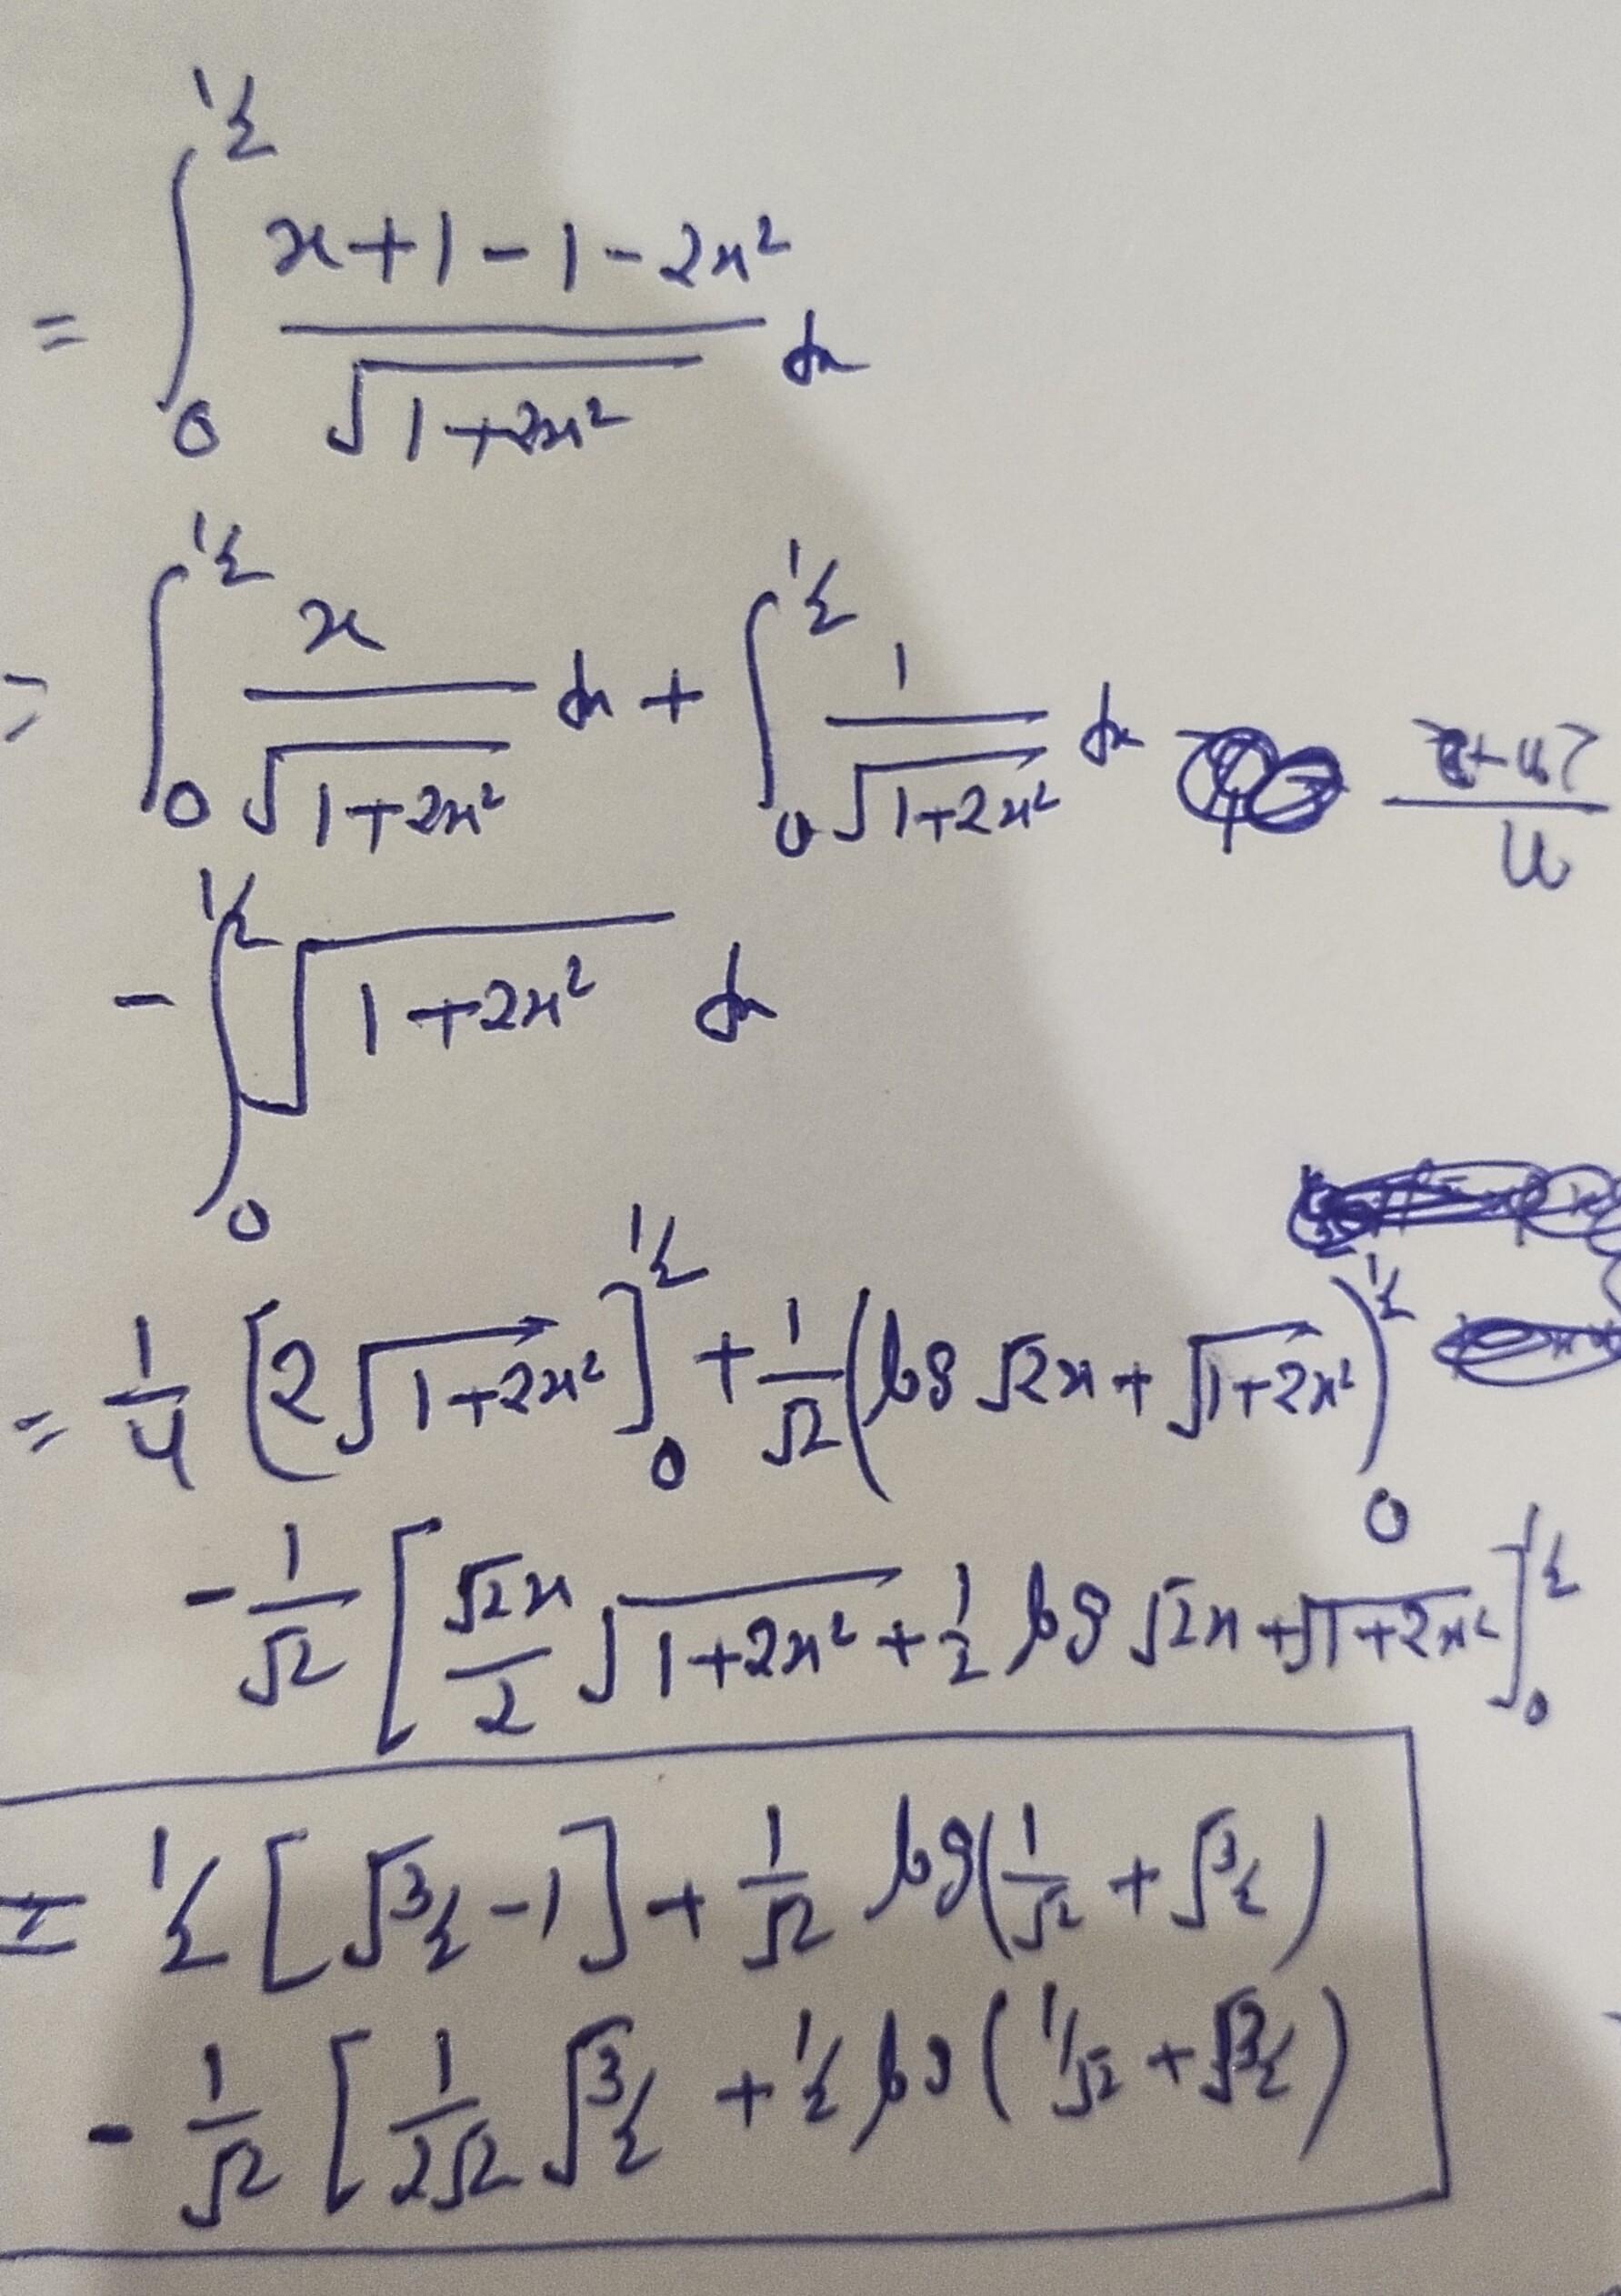 = ∫₀^½ (x+1-1-2x²)/√(1+2x²) dx
= ∫₀^½ x/√(1+2x²) dx + ∫₀^½ 1/√(1+2x²) dx
- ∫₀^½ √(1+2x²) dx
= 1/4 [2√(1+2x²)]₀^½ + 1/√2 (log √2x + √(1+2x²))₀^½
- 1/√2 [√2x/2 √(1+2x²) + 1/2 log √2x + √(1+2x²)]₀^½
= ½ [√(3/2) - 1] + 1/√2 log(1/√2 + √(3/2))
- 1/√2 [1/(2√2) √(3/2) + ½ log(1/√2 + √(3/2))